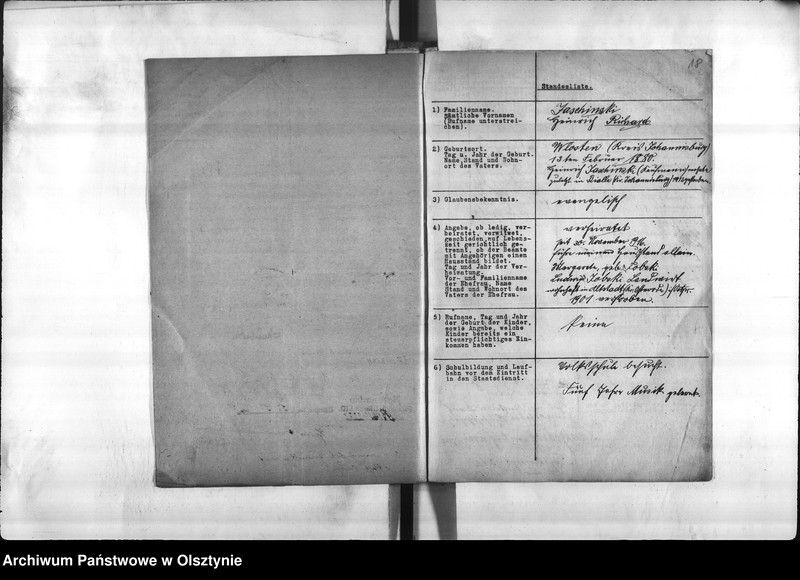 18
Standesliste.
1) Familienname.
Sämtliche Vornamen
(Rufname unterstrei-
chen).
Jaschinski
Heinrich Richard
2) Geburtsort.
Tag u. Jahr der Geburt.
Name, Stand und Wohn-
ort des Vaters.
Wlosten (Kreis Johannisburg)
13ten Februar 1880.
Heinrich Jaschinski (Kaufmann)
zuletzt in Bialla Kr. Johannisburg
3) Glaubensbekenntnis.
evangelisch
4) Angabe, ob ledig, ver-
heiratet, verwitwet,
geschieden, auf Lebens-
zeit gerichtlich ge-
trennt, ob der Beamte
mit Angehörigen einen
Hausstand bildet.
Tag und Jahr der Ver-
heiratung.
Vor- und Familienname
der Ehefrau, Name
Stand und Wohnort des
Vaters der Ehefrau.
verheiratet
seit 30. November 1916.
führe Hausstand allein.
Margarete, geb.
Ludwig Landwirt
wohnhaft in
1901 verstorben.
5) Rufname, Tag und Jahr
der Geburt der Kinder,
sowie Angabe, welche
Kinder bereits ein
steuerpflichtiges Ein-
kommen haben.
keine
6) Schulbildung und Lauf-
bahn vor dem Eintritt
in den Staatsdienst.
Volksschule besucht.
Fünf Jahre Musik gelernt.
Archiwum Państwowe w Olsztynie